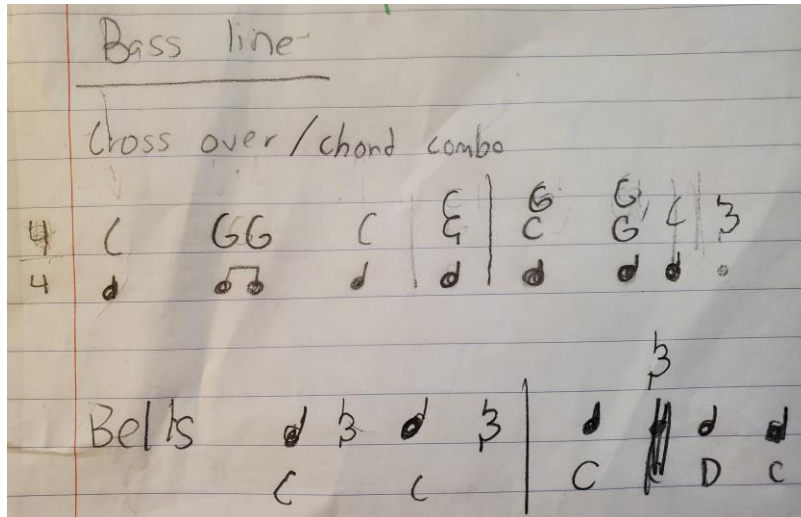 Bass line
Cross over/chord combo
C G G
4 C GG C G C G C
4
Bells
C C C D C